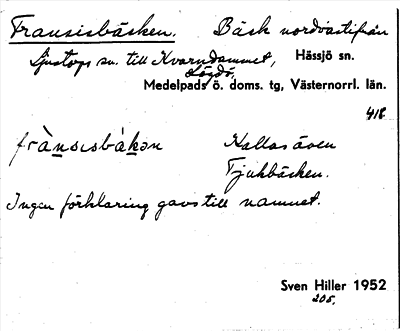 Fransisbäcken. Bäck nordväst ifrån
Ljustorps sn. till Kvarndammet, Hässjö sn.
Lögdö,
Medelpads ö. doms. tg, Västernorrl. län.
418
frànsɩsbàkən Kallas även
Tjuhbäcken.
Ingen förklaring gavs till namnet.
Sven Hiller 1952
205.